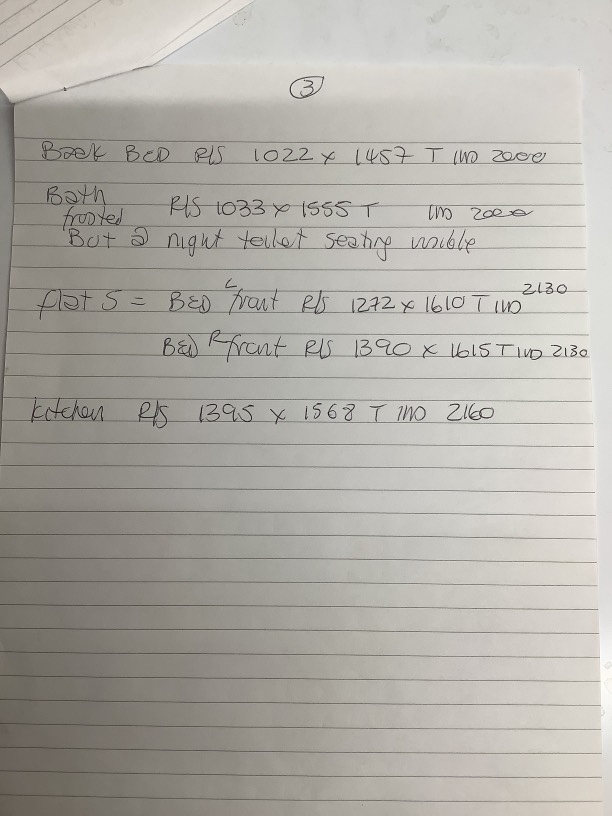 3
Back BED R/S 1022 x 1457 T IND 2000
Bath R/S 1033 x 1555 T IND 2000
frosted
But a night toilet seating visible
flat 5 = BED L front R/S 1272 x 1610 T IND 2130
BED R front R/S 1390 x 1615 T IND 2130
kitchen R/S 1395 x 1568 T IND 2160